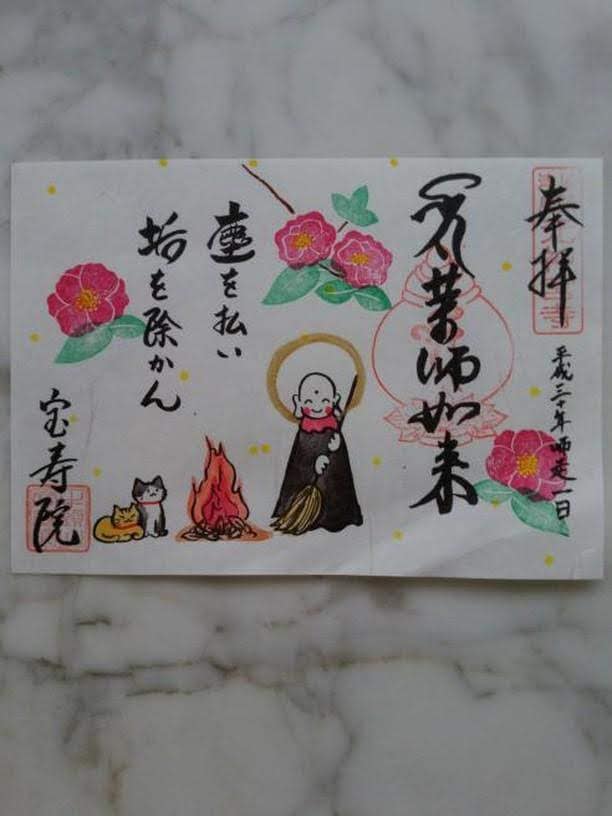 奉拝
平成三十年師走一日
薬師如来
塵を払い
垢を除かん
宝寿院